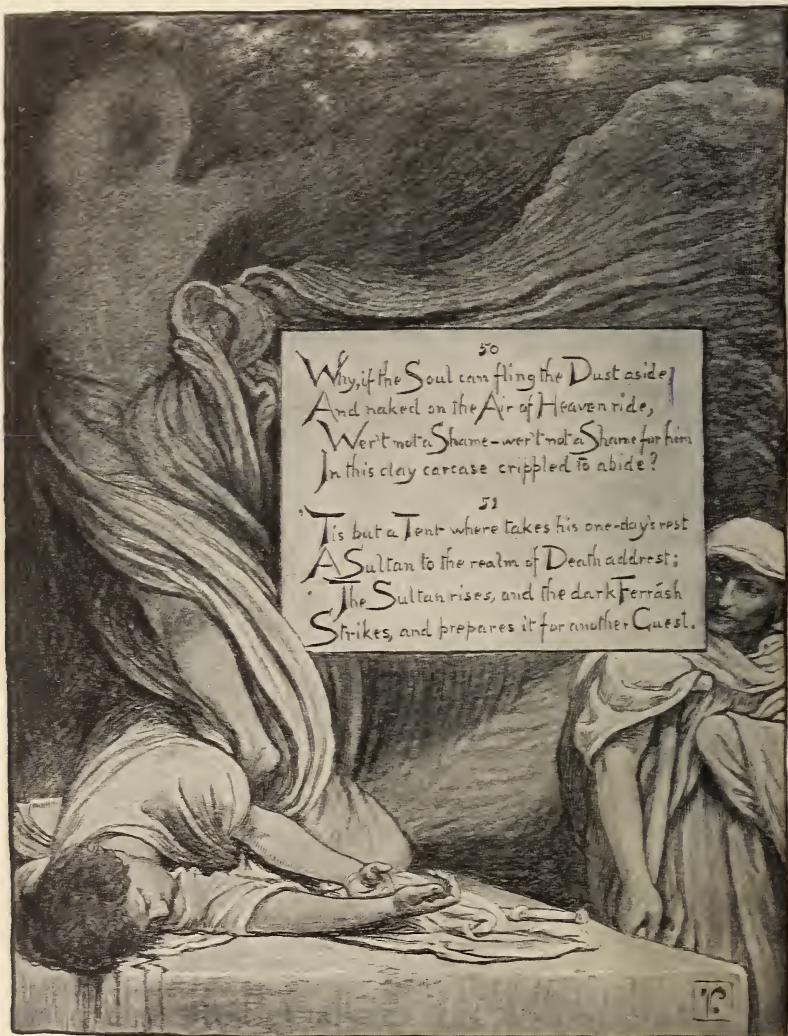 50
Why, if the Soul can fling the Dust aside,
And naked on the Air of Heaven ride,
Wer't not a Shame–wer't not a Shame for him
In this clay carcase crippled to abide?
51
'Tis but a Tent where takes his one-day's rest
A Sultan to the realm of Death addrest;
The Sultan rises, and the dark Ferrásh
Strikes, and prepares it for another Guest.